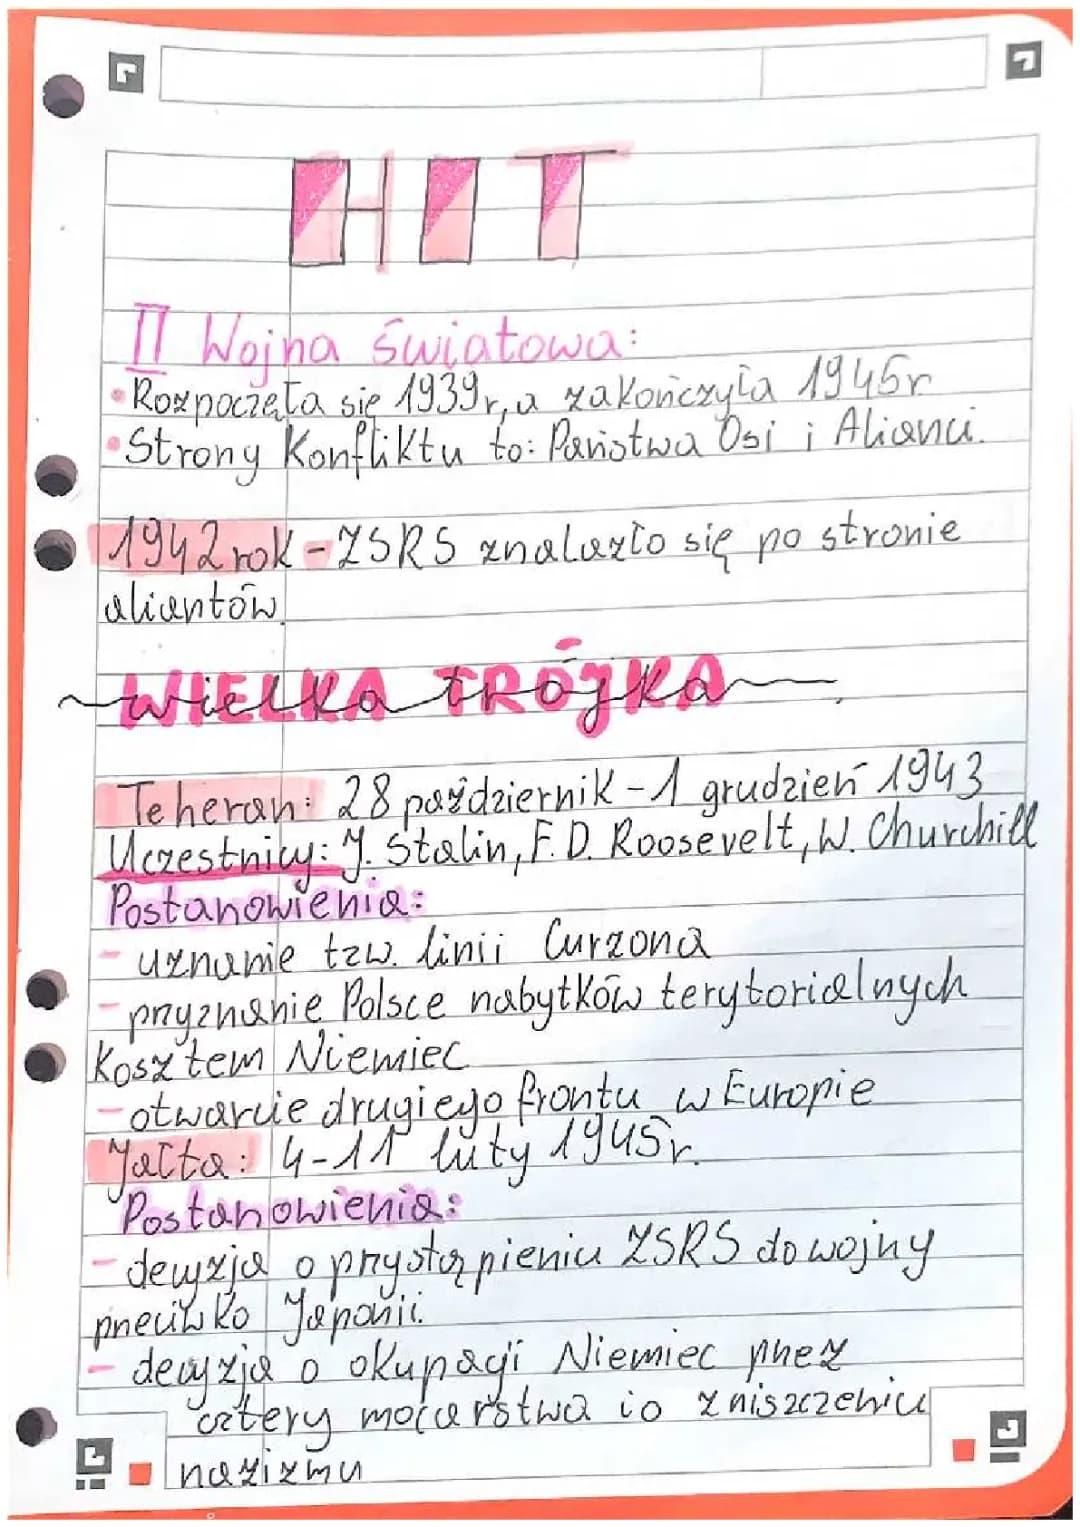 HIT
II Wojna światowa:
•Rozpoczęła się 1939r, a zakończyła 1945r
•Strony Konfliktu to: Państwa Osi i Alianci.
1942 rok - ZSRS znalazło się po stronie
aliantów
WIELKA TRÓJKA
Teheran: 28 październik - 1 grudzień 1943
Uczestnicy: J. Stalin, F. D. Roosevelt, W. Churchill
Postanowienia:
- uznanie tzw. linii Curzona
- pryznanie Polsce nabytków terytorialnych
Kosztem Niemiec
- otwarcie drugiego frontu w Europie
Jałta: 4-11 luty 1945r.
Postanowienia:
- decyzja o przystąpieniu ZSRS do wojny
przeciwko Japonii.
- decyzja o okupacji Niemiec przez
cztery mocarstwa i o zniszczeniu
nazizmu